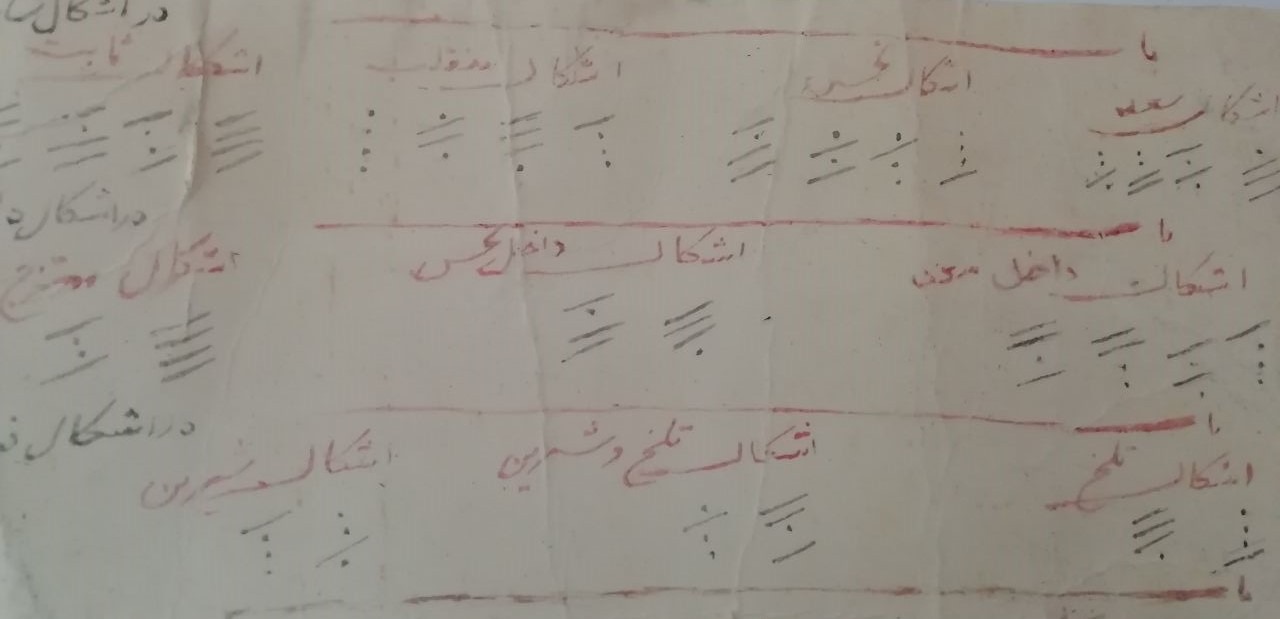 در اشکال
با
اشکال سعد اشکال نحس اشکال منقلب اشکال ثابت
در اشکال
با
اشکال داخل اشکال داخل نحس اشکال ممتزج
در اشکال
با
اشکال تلخ اشکال تلخ و شیرین اشکال شیرین
با